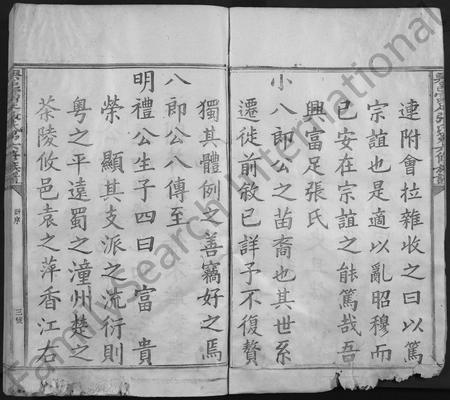 連附會拉雜收之曰以篤
宗誼也是適以亂昭穆而
已安在宗誼之能篤哉吾
興富足張氏
小八郎公之苗裔也其世系
遷徙前敘已詳予不復贅
獨其體例之善竊好之焉
八郎公八傳至
明禮公生子四曰 富 貴
榮 顯其支派之流衍則
粵之平遠蜀之潼州楚之
茶陵攸邑袁之萍香江右
三號
FamilySearch International